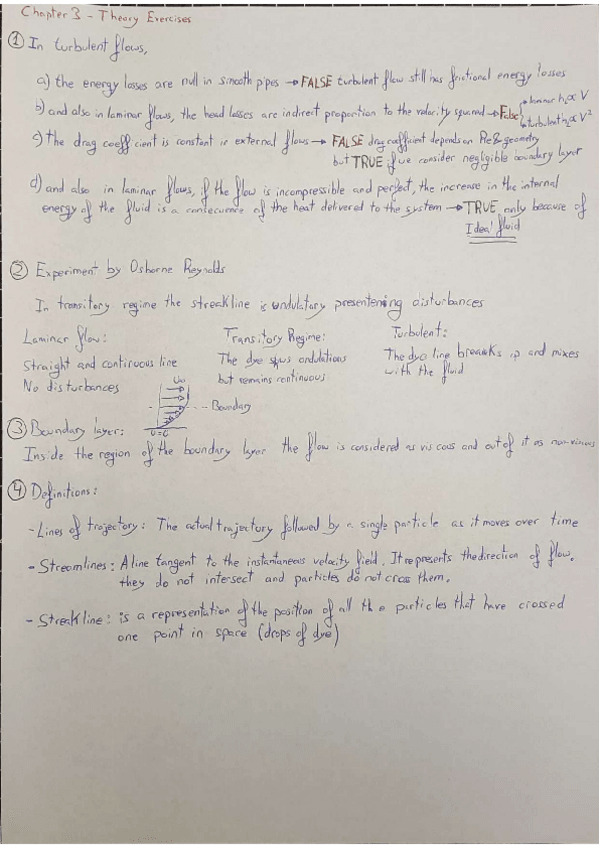 Chapter 3 - Theory Exercises
① In turbulent flows,
a) the energy losses are null in smooth pipes → FALSE turbulent flow still has frictional energy losses
b) and also in laminar flows, the head losses are indirect proportion to the velocity squared → False laminar h₂ ∝ V
turbulent h₂ ∝ V²
c) The drag coefficient is constant in external flows → FALSE drag coefficient depends on Re & geometry
but TRUE if we consider negligible boundary layer
d) and also in laminar flows, if the flow is incompressible and perfect, the increase in the internal
energy of the fluid is a consecuence of the heat delivered to the system → TRUE, only because of
Ideal fluid
② Experiment by Osborne Reynolds
In transitory regime the streakline is undulatory presentening disturbances
Laminar flow: Transitory Regime: Turbulent:
Straight and continuous line The dye shows ondulations The dye line breaks up and mixes
No disturbances but remains continuous with the fluid
U∞
Boundary
③ Boundary layer:
Inside the region of the boundary layer the flow is considered as viscous and out of it as non-viscous
④ Definitions:
- Lines of trajectory: The actual trajectory followed by a single particle as it moves over time
- Streamlines: A line tangent to the instantaneous velocity field. It represents the direction of flow.
they do not intersect and particles do not cross them.
- Streakline: is a representation of the position of all the particles that have crossed
one point in space (drops of dye)